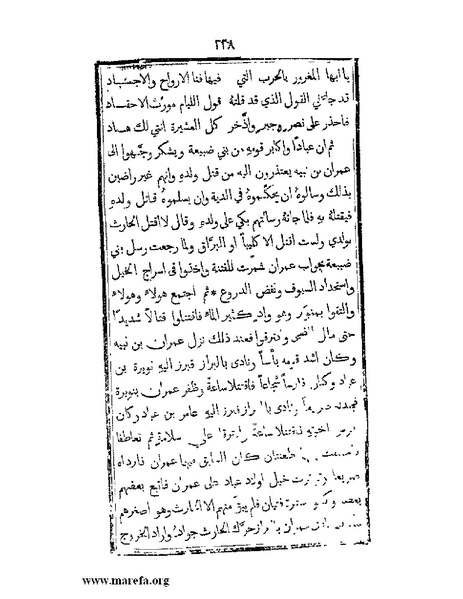 ٢٣٨
يا ايها المغرور بالحرب التي فيها فنا الارواح والاجساد
قد جاءني القول الذي قد قلته قول اللئام مورث الاحقاد
فاحذر على نصره جبير واذّخر كل العشيرة انني لك هساد
ثم ان عبادًا واكابر قومه من بني ضبيعة ويشكر وجّهوا الى
عمران بن نبيه يعتذرون اليه من قتل ولده وانهم غير راضين
بذلك وسالوه ان يحكّموه في الدية وان يسلموه قاتل ولده
فيقتله به فلما جاءته رسائلهم بكى على ولده وقال لا اقتل الحارث
بولدي ولست اقتل الا كليبًا او البرّاق ولما رجعت رسل بني
ضبيعة بجواب عمران شمّرت للفتنة واخذوا في اسراج الخيل
واستحداد السيوف ونفض الدروع * ثم اجتمع هولاء وهولاء
والتقوا بمنور وهو وادٍ كثير الماء فاقتتلوا قتالًا شديدًا
حتى مال الضحى وتفرقوا فعند ذلك نزل عمران بن نبيه
وكان اشد قومه بأسًا ونادى بالبراز فبرز اليه نويرة بن
عباد وكان فارسًا شجاعًا فاقتتلا ساعة وظفر عمران بنويرة
فجدله صريعًا ونادى بالبراز فبرز اليه عامر بن عباد وكان
اخيه فاقتتلا ساعة على سلامة ثم تعاطفا
طعنتان كان السابق عمران فارداه
صريعًا خيل اولاد عباد على عمران فاتبع بعضهم
بعض وكانوا فتيان فلم يبق منهم الا الحارث وهو اصغرهم
عمران بالبراز حرك الحارث جواده واراد الخروج
www.marefa.org